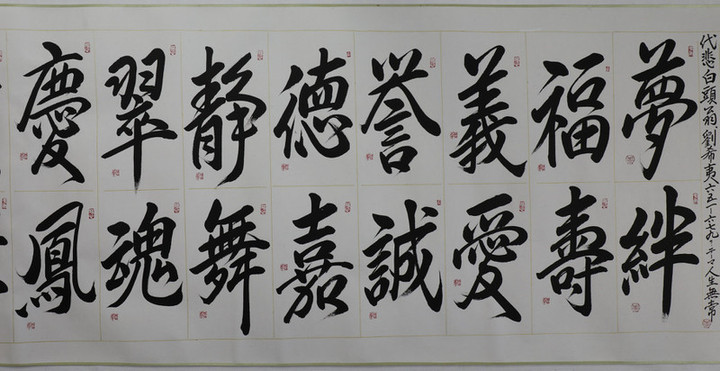 代悲白頭翁 劉希夷 六五一－六七九 年々人生無常
夢絆
福壽
義愛
誉誠
德嘉
靜舞
翠魂
慶鳳